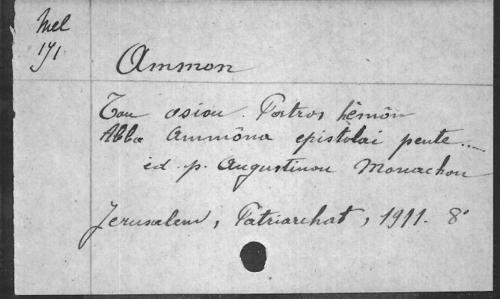 Mel
171
Ammon
Tou osiou Patros hêmôn
Abba Ammôna epistolai pente.....
éd. p. Augustinou Monachou
Jerusalem, Patriarchat, 1911. 8°